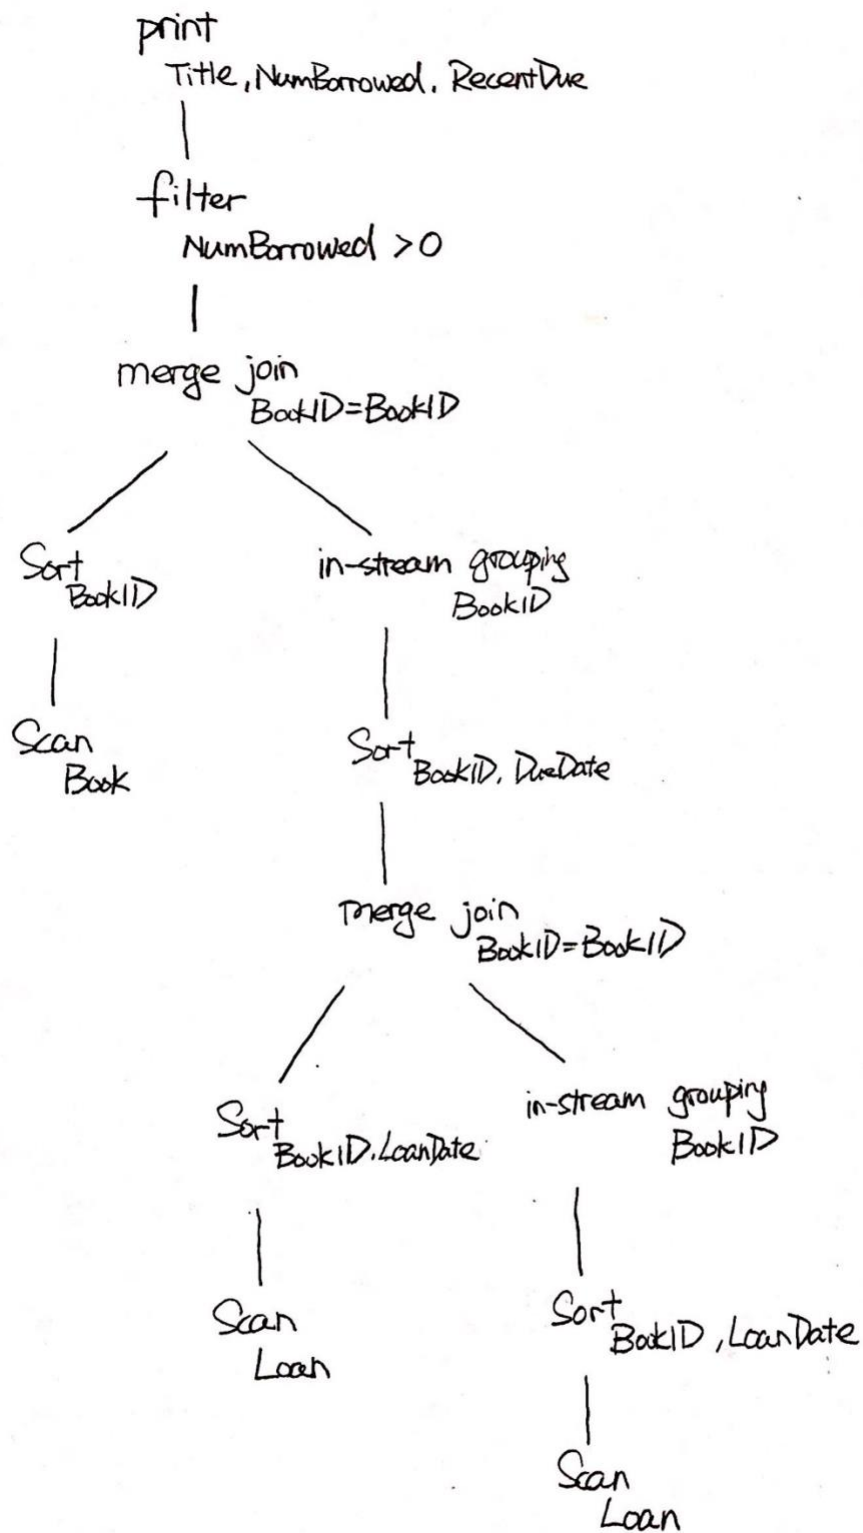 print
Title, NumBorrowed, RecentDue
filter
NumBorrowed >0
merge join
BookID=BookID
Sort
BookID
in-stream grouping
BookID
Scan
Book
Sort
BookID, DueDate
merge join
BookID=BookID
Sort
BookID, LoanDate
in-stream grouping
BookID
Scan
Loan
Sort
BookID, LoanDate
Scan
Loan